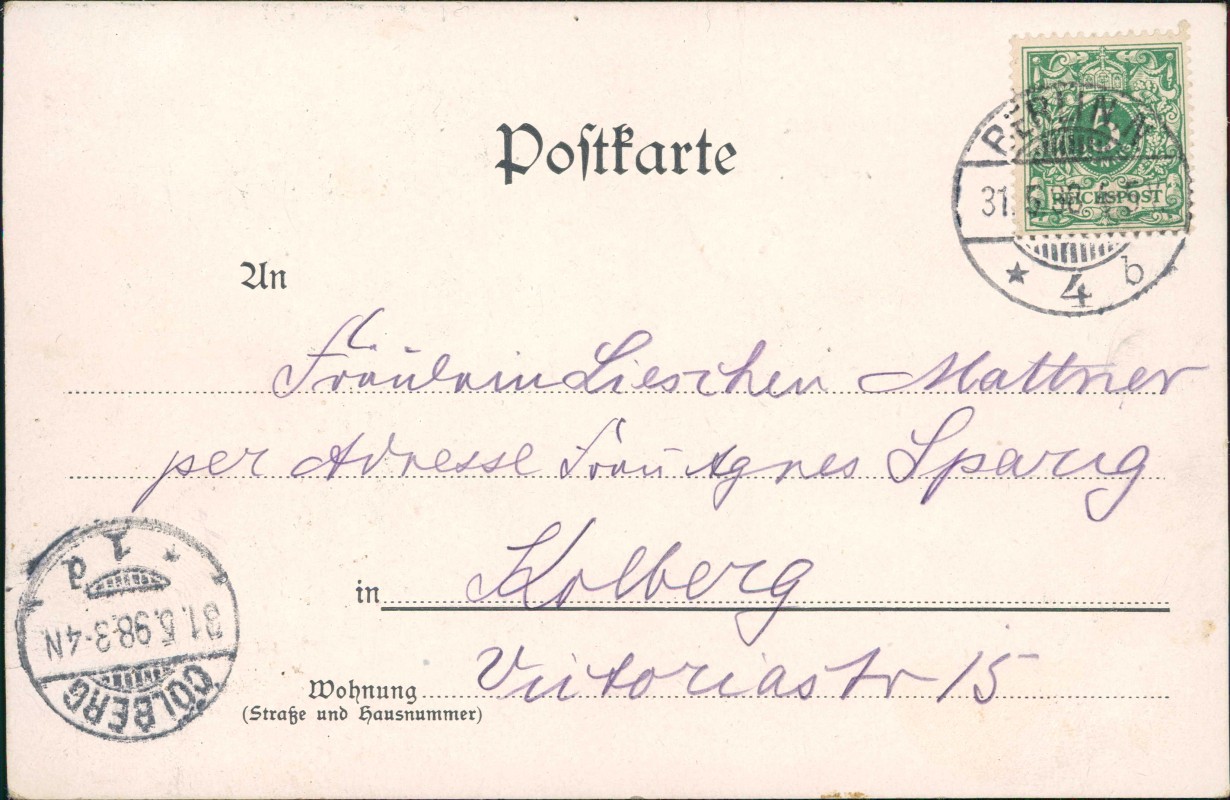 Postkarte
BERLIN
31.5.98
REICHSPOST
4 b
An
Fräulein Lieschen Mattner
per Adresse Frau Agnes Sparig
in Kolberg
Wohnung Victoriastr 15
(Straße und Hausnummer)
COLBERG
31.5.98.3-4N
* 1 d